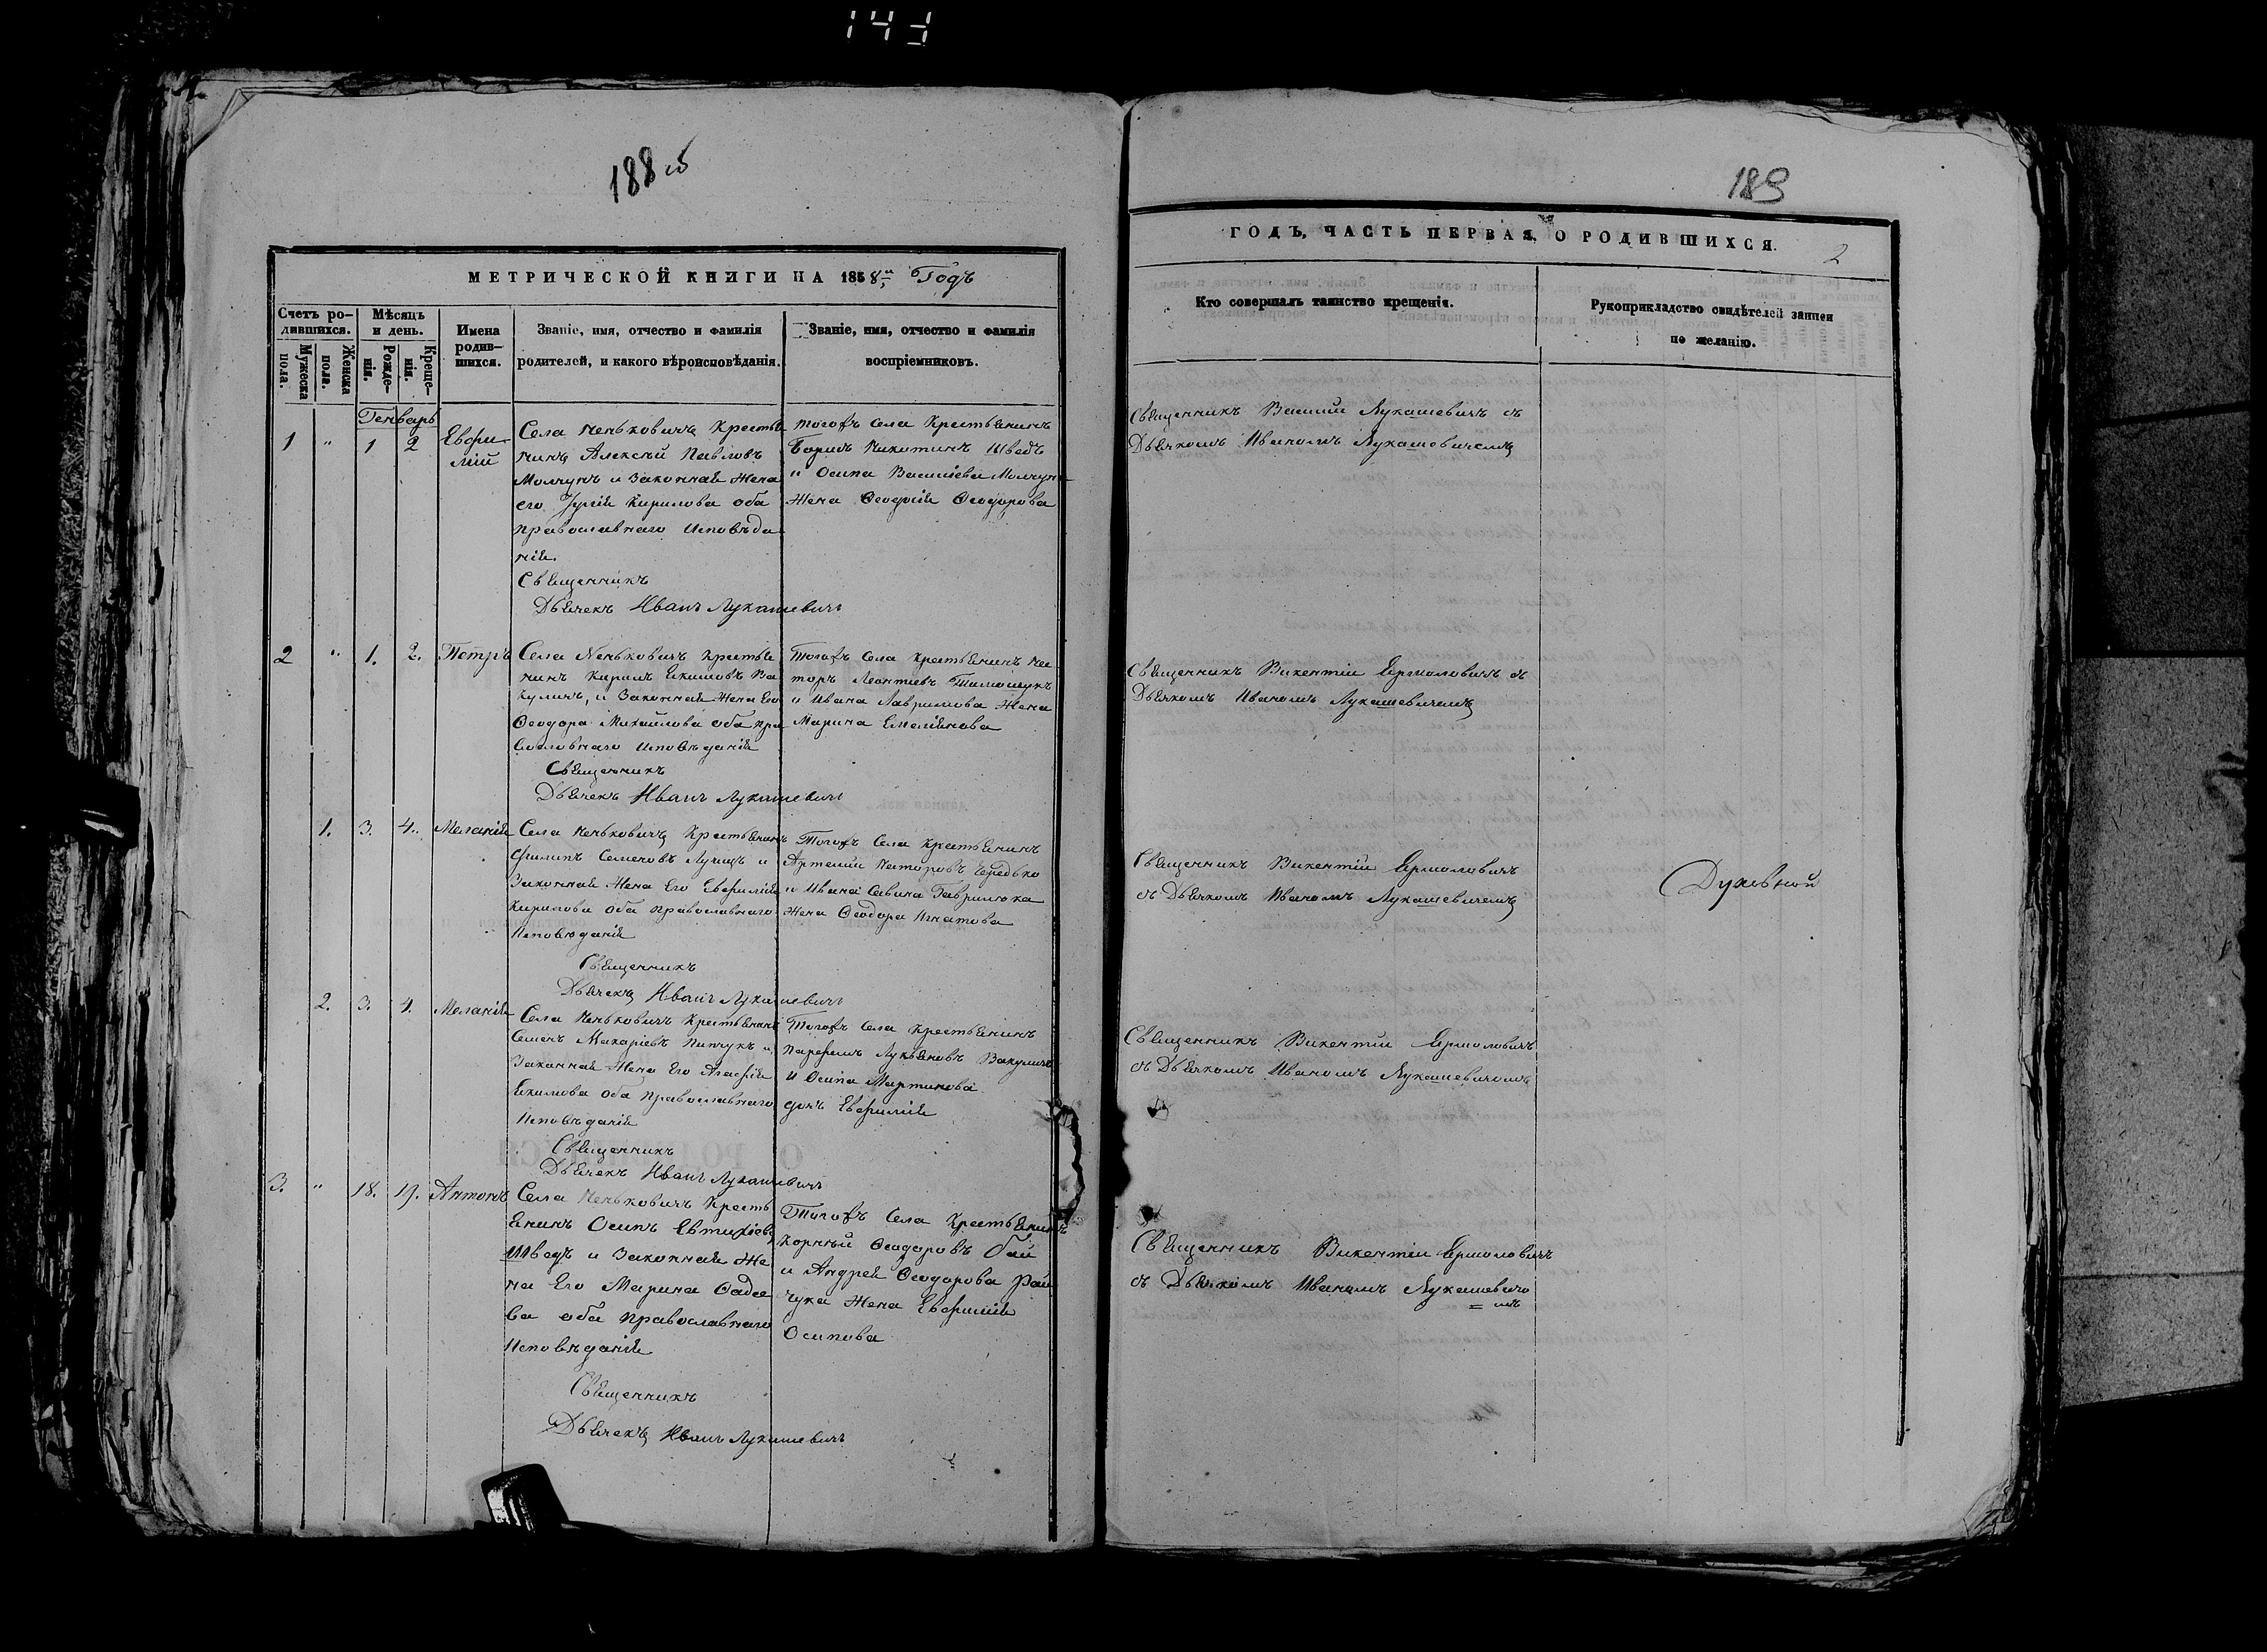 143
188 об
МЕТРИЧЕСКОЙ КНИГИ НА 1858й Годъ
Счетъ ро-
дившихся.
Мужеска
пола.
Женска
пола.
Мѣсяцъ
и день.
Рожде-
нія.
Креще-
нія.
Имена
родив-
шихся.
Званіе, имя, отчество и фамилія
родителей, и какого вѣроисповѣданія.
Званіе, имя, отчество и фамилія
воспріемниковъ.
Генварь
1 " 1 2
Евфи-
мій
Села Неньковичъ Крестья
нинъ Алексѣй Павловъ
Молчунъ и Законная Жена
его Кирилова оба
православнаго Исповѣда
нія.
Священникъ
Дьячекъ Иванъ Лукашевичъ
тогожъ Села Крестьянинъ
Борисъ Никитинъ Шведъ
и Осипа Василіева Молчуна
Жена Феодосія Феодорова
2 " 1. 2. Петръ
Села Неньковичъ Крестья
нинъ Кирилъ Екимовъ Ва
куличъ, и Законная Жена Его
Феодора Михайлова оба пра
вославнаго Исповѣданія
Священникъ
Дьячекъ Иванъ Лукашевичъ
Тогожъ Села Крестьянинъ Не
торъ Леонтіевъ Тимощукъ
и Ивана Лавринова Жена
Марина Емеліянова
1. 3. 4. Меланія
Села Неньковичъ Крестьянинъ
Филипъ Семеновъ и
Законная Жена Его Евфимія
Кирилова оба православнаго
Исповѣданія
Священникъ
Дьячекъ Иванъ Лукашевичъ
Тогожъ Села Крестьянинъ
Артемій Несторовъ Чередько
и Ивана Савина Гаврилюка
Жена Феодора Игнатова
2. 3. 4. Меланія
Села Неньковичъ Крестьянинъ
Семенъ Макаріевъ Пинчукъ и
Законная Жена Его Агафія
Екимова оба православнаго
Исповѣданія
Священникъ
Дьячекъ Иванъ Лукашевичъ
Тогожъ Села Крестьянинъ
Парфенъ Лукьяновъ Вакуличъ
и Осипа Мартинова
дочь Евфимія
3. " 18. 19. Антонъ
Села Неньковичъ Кресть
янинъ Осипъ Евтихіевъ
Шведъ и Законная Же
на Его Марина Фадее
ва оба православнаго
Исповѣданія
Священникъ
Дьячекъ Иванъ Лукашевичъ
Тогожъ Села Крестьянинъ
Корнѣй Феодоровъ
и Андрея Феодорова Рай
чука Жена Евфимія
Осипова
189
ГОДЪ, ЧАСТЬ ПЕРВАЯ, О РОДИВШИХСЯ.
2
Кто совершалъ таинство крещенія.
Рукоприкладство свидѣтелей записи
по желанію.
Священникъ Василій Лукашевичъ съ
Дьячкомъ Иваномъ Лукашевичемъ
Священникъ Викентій Ярмоловичъ съ
Дьячкомъ Иваномъ Лукашевичемъ
Священникъ Викентій Ярмоловичъ
съ Дьячкомъ Иваномъ Лукашевичемъ
Духовной
Священникъ Викентій Ярмоловичъ
съ Дьячкомъ Иваномъ Лукашевичемъ
Священникъ Викентій Ярмоловичъ
съ Дьячкомъ Иваномъ Лукашевиче
= мъ